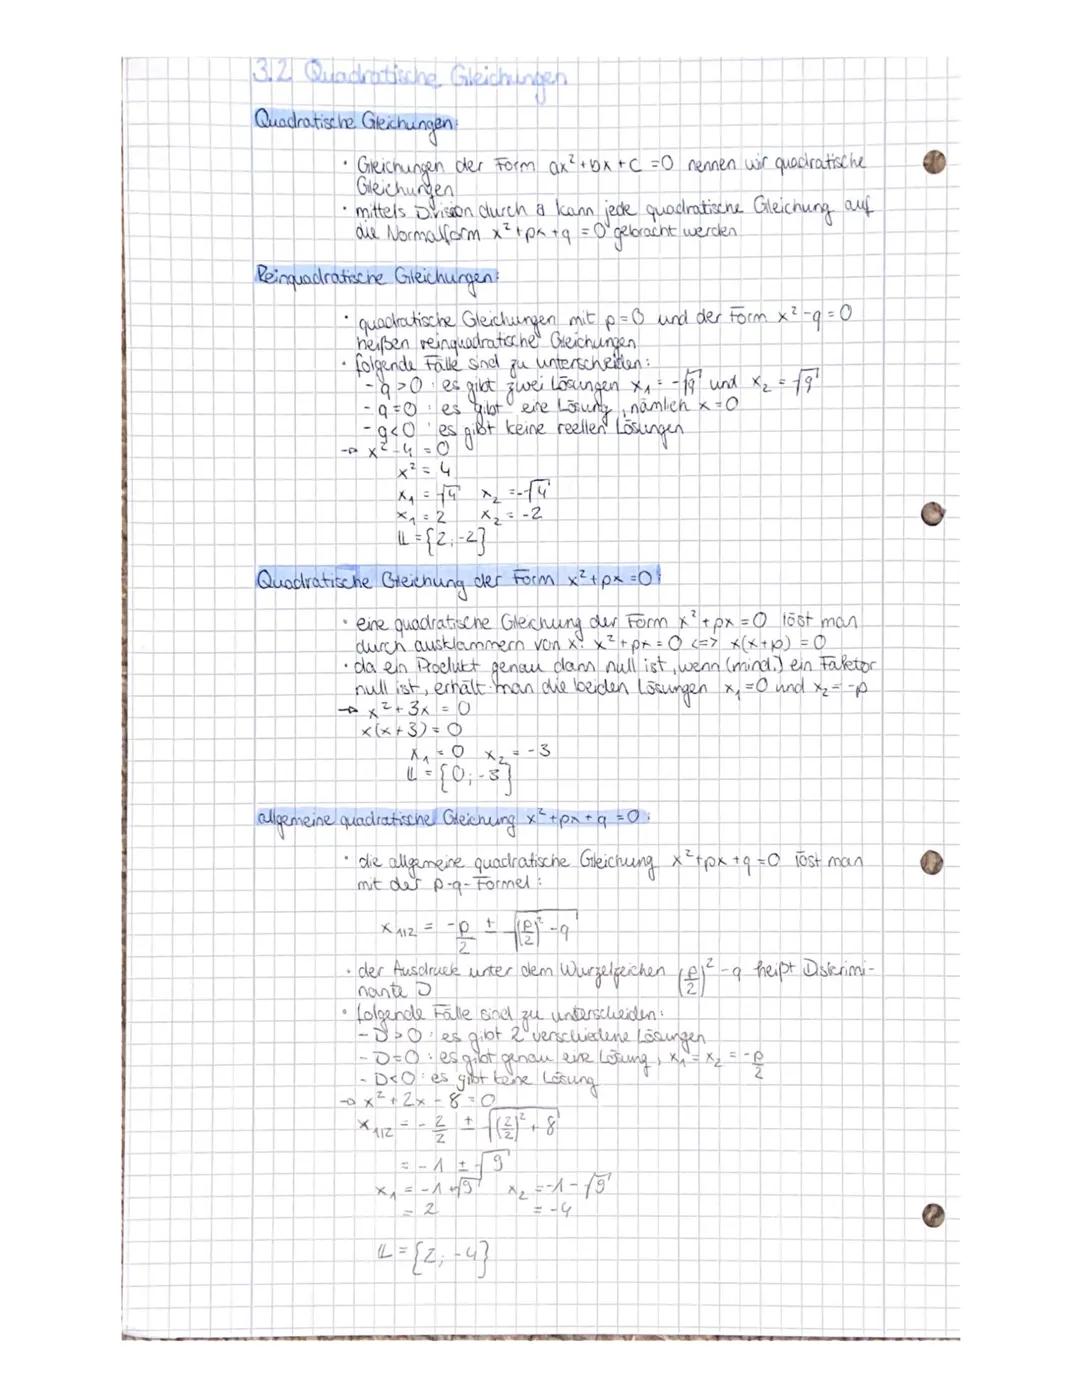 3.2 Quadratische Gleichungen
Quadratische Gleichungen:
• Gleichungen der Form ax²+bx+c =0 nennen wir quadratische
Gleichungen
• mittels Division durch a kann jede quadratische Gleichung auf
die Normalform x²+px+q = 0 gebracht werden
Reinquadratische Gleichungen:
• quadratische Gleichungen mit p=0 und der Form x²-q=0
heißen reinquadratische Gleichungen
• folgende Fälle sind zu unterscheiden:
- q>0 : es gibt zwei Lösungen x₁ = -√q und x₂ = √q
- q=0 : es gibt eine Lösung, nämlich x=0
- q<0 : es gibt keine reellen Lösungen
→ x²-4 = 0
x² = 4
x₁ = √4 x₂ = -√4
x₁ = 2 x₂ = -2
𝕃 = {2; -2}
Quadratische Gleichung der Form x²+px =0:
• eine quadratische Gleichung der Form x²+px=0 löst man
durch ausklammern von x: x²+px=0 <=> x(x+p) = 0
• da ein Produkt genau dann null ist, wenn (mind.) ein Faktor
null ist, erhält man die beiden Lösungen x₁=0 und x₂=-p
→ x²+3x = 0
x(x+3) = 0
x₁ = 0 x₂ = -3
𝕃 = {0; -3}
allgemeine quadratische Gleichung x²+px+q =0:
• die allgemeine quadratische Gleichung x²+px+q=0 löst man
mit der p-q-Formel:
x₁/₂ = -p/2 ± √((p/2)²-q)
• der Ausdruck unter dem Wurzelzeichen (p/2)²-q heißt Diskrimi-
nante D
• folgende Fälle sind zu unterscheiden:
- D>0 : es gibt 2 verschiedene Lösungen
- D=0 : es gibt genau eine Lösung, x₁=x₂ = -p/2
- D<0 : es gibt keine Lösung
→ x²+2x-8=0
x₁/₂ = -2/2 ± √((2/2)²+8)
= -1 ± √9
x₁ = -1+√9 x₂ = -1-√9
= 2 = -4
𝕃 = {2; -4}